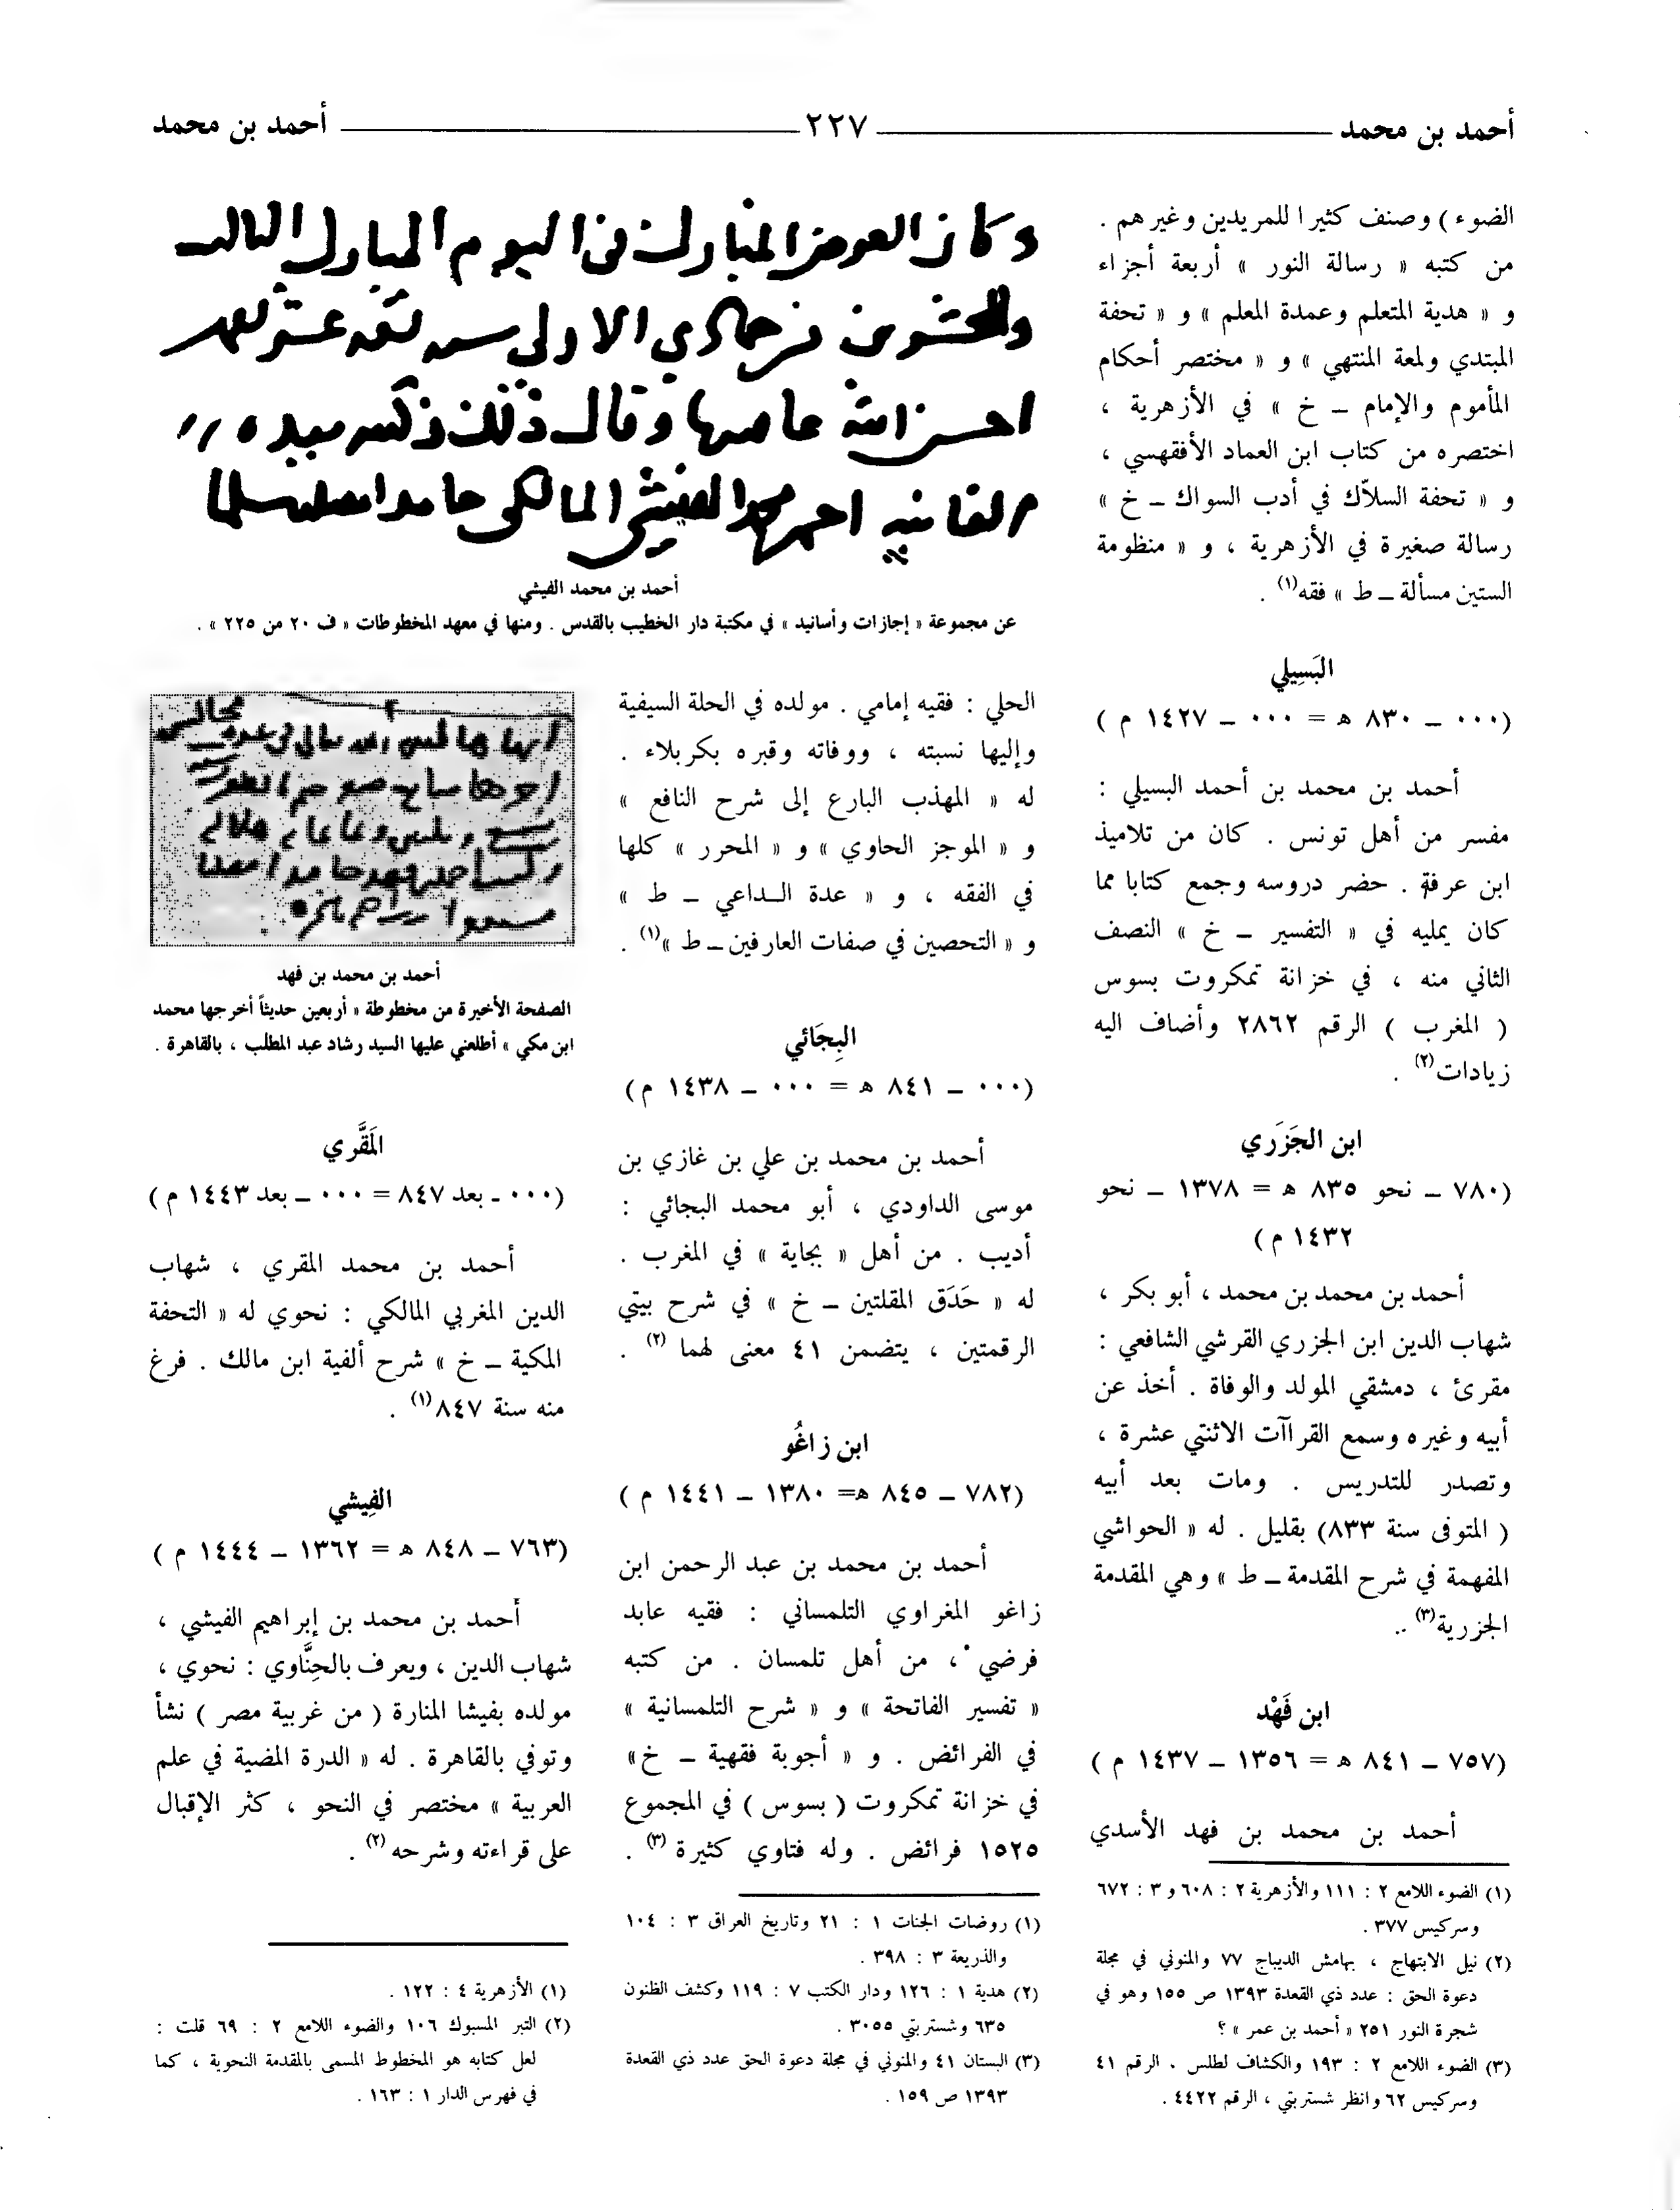 أحمد بن محمد
٢٢٧
أحمد بن محمد
الضوء ) وصنف كثيرا للمريدين وغيرهم .
من كتبه « رسالة النور » أربعة أجزاء
و « هدية المتعلم وعمدة المعلم » و « تحفة
المبتدي ولمعة المنتهي » و « مختصر أحكام
المأموم والإمام – خ » في الأزهرية ،
اختصره من كتاب ابن العماد الأقفهسي ،
و « تحفة السلاّك في أدب السواك – خ »
رسالة صغيرة في الأزهرية ، و « منظومة
الستين مسألة – ط » فقه(١) .
البَسِيلي
(٠٠٠ – ٨٣٠ ه = ٠٠٠ – ١٤٢٧ م )
أحمد بن محمد بن أحمد البسيلي :
مفسر من أهل تونس . كان من تلاميذ
ابن عرفة . حضر دروسه وجمع كتابا مما
كان يمليه في « التفسير – خ » النصف
الثاني منه ، في خزانة تمكروت بسوس
( المغرب ) الرقم ٢٨٦٢ وأضاف اليه
زيادات(٢) .
ابن الجَزَري
(٧٨٠ – نحو ٨٣٥ ه = ١٣٧٨ – نحو
١٤٣٢ م )
أحمد بن محمد بن محمد ، أبو بكر ،
شهاب الدين ابن الجزري القرشي الشافعي :
مقرئ ، دمشقي المولد والوفاة . أخذ عن
أبيه وغيره وسمع القراآت الاثنتي عشرة ،
وتصدر للتدريس . ومات بعد أبيه
( المتوفى سنة ٨٣٣) بقليل . له « الحواشي
المفهمة في شرح المقدمة – ط » وهي المقدمة
الجزرية(٣) ..
ابن فَهْد
(٧٥٧ – ٨٤١ ه = ١٣٥٦ – ١٤٣٧ م )
أحمد بن محمد بن فهد الأسدي
(١) الضوء اللامع ٢ : ١١١ والأزهرية ٢ : ٦٠٨ و ٣ : ٦٧٢
وسركيس ٣٧٧ .
(٢) نيل الابتهاج ، بهامش الديباج ٧٧ والمنوني في مجلة
دعوة الحق : عدد ذي القعدة ١٣٩٣ ص ١٥٥ وهو في
شجرة النور ٢٥١ « أحمد بن عمر » ؟
(٣) الضوء اللامع ٢ : ١٩٣ والكشاف لطلس ، الرقم ٤١
وسركيس ٦٢ وانظر شستربتي ، الرقم ٤٤٢٢ .
وكان العرض المبارك في اليوم المبارك الثالث
والعشرين من جمادي الاولى سنة
احسن الله وقال ذلك
احمد محمد الفيشي المالكي حامدا
أحمد بن محمد الفيشي
عن مجموعة « إجازات وأسانيد » في مكتبة دار الخطيب بالقدس . ومنها في معهد المخطوطات « ف ٢٠ من ٢٢٥ » .
الحلي : فقيه إمامي . مولده في الحلة السيفية
وإليها نسبته ، ووفاته وقبره بكربلاء .
له « المهذب البارع إلى شرح النافع »
و « الموجز الحاوي » و « المحرر » كلها
في الفقه ، و « عدة الداعي – ط »
و « التحصين في صفات العارفين – ط »(١) .
البِجَائي
(٠٠٠ – ٨٤١ ه = ٠٠٠ – ١٤٣٨ م)
أحمد بن محمد بن علي بن غازي بن
موسى الداودي ، أبو محمد البجائي :
أديب . من أهل « بجاية » في المغرب .
له « حَدَق المقلتين – خ » في شرح بيتي
الرقمتين ، يتضمن ٤١ معنى لهما (٢) .
ابن زاغُو
(٧٨٢ – ٨٤٥ ه= ١٣٨٠ – ١٤٤١ م )
أحمد بن محمد بن عبد الرحمن ابن
زاغو المغراوي التلمساني : فقيه عابد
فرضي ، من أهل تلمسان . من كتبه
« تفسير الفاتحة » و « شرح التلمسانية »
في الفرائض . و « أجوبة فقهية – خ»
في خزانة تمكروت ( بسوس ) في المجموع
١٥٢٥ فرائض . وله فتاوي كثيرة (٣) .
(١) روضات الجنات ١ : ٢١ وتاريخ العراق ٣ : ١٠٤
والذريعة ٣ : ٣٩٨ .
(٢) هدية ١ : ١٢٦ ودار الكتب ٧ : ١١٩ وكشف الظنون
٦٣٥ وشستربتي ٣٠٥٥ .
(٣) البستان ٤١ والمنوني في مجلة دعوة الحق عدد ذي القعدة
١٣٩٣ ص ١٥٩ .
أحمد بن محمد بن فهد
الصفحة الأخيرة من مخطوطة « أربعين حديثاً أخرجها محمد
ابن مكي » أطلعني عليها السيد رشاد عبد المطلب ، بالقاهرة .
المَقَّري
(٠٠٠ - بعد ٨٤٧ = ٠٠٠ – بعد ١٤٤٣ م )
أحمد بن محمد المقري ، شهاب
الدين المغربي المالكي : نحوي له « التحفة
المكية – خ » شرح ألفية ابن مالك . فرغ
منه سنة ٨٤٧(١) .
الفِيشي
(٧٦٣ – ٨٤٨ ه = ١٣٦٢ – ١٤٤٤ م )
أحمد بن محمد بن إبراهيم الفيشي ،
شهاب الدين ، ويعرف بالحِنَّاوي : نحوي ،
مولده بفيشا المنارة ( من غربية مصر ) نشأ
وتوفي بالقاهرة . له « الدرة المضية في علم
العربية » مختصر في النحو ، كثر الإقبال
على قراءته وشرحه (٢) .
(١) الأزهرية ٤ : ١٢٢ .
(٢) التبر المسبوك ١٠٦ والضوء اللامع ٢ : ٦٩ قلت :
لعل كتابه هو المخطوط المسمى بالمقدمة النحوية ، كما
في فهرس الدار ١ : ١٦٣ .